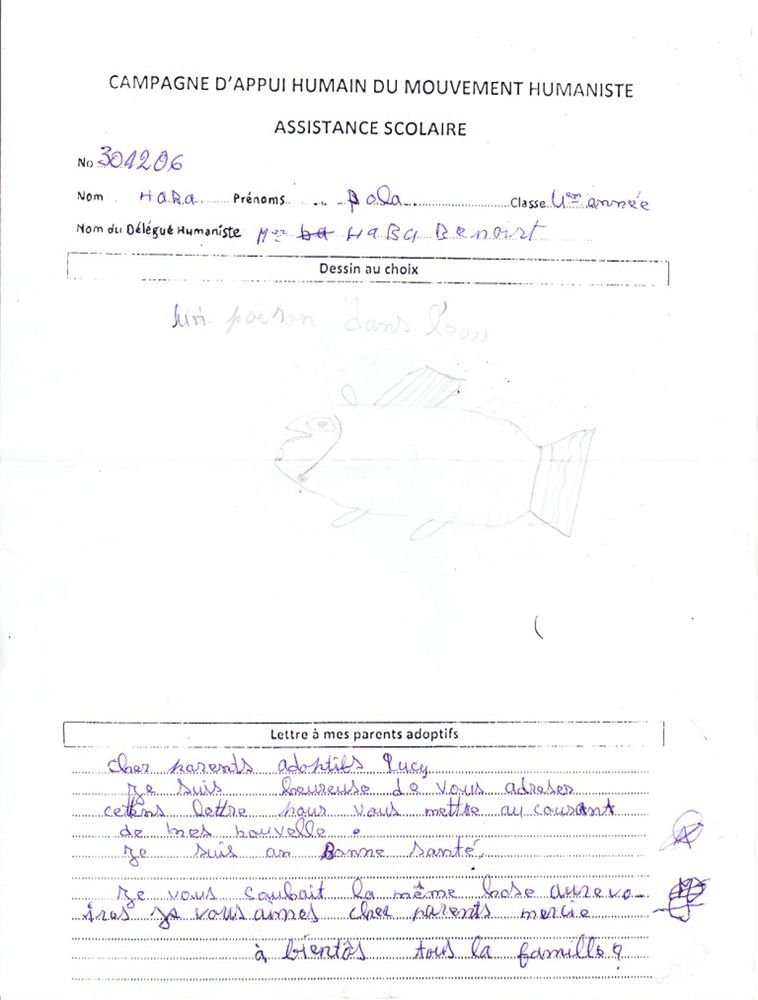 CAMPAGNE D'APPUI HUMAIN DU MOUVEMENT HUMANISTE
ASSISTANCE SCOLAIRE
No 301206
Nom HABA Prénoms Pola Classe 4em année
Nom du Délégué Humaniste Mer ba HABA Benoirt
Dessin au choix
un poison dans l'eau
Lettre à mes parents adoptifs
cher parents adoptifs Lucy
Je suis heureuse de vous adreser
cettens lettre pour vous mettre au courant
de mes nouvelle.
Je suis an Bonne Santé,
Je vous souhait la même hose aurevo-
ires je vous aimes cher parents mercie
à bientôs tous la famille ?